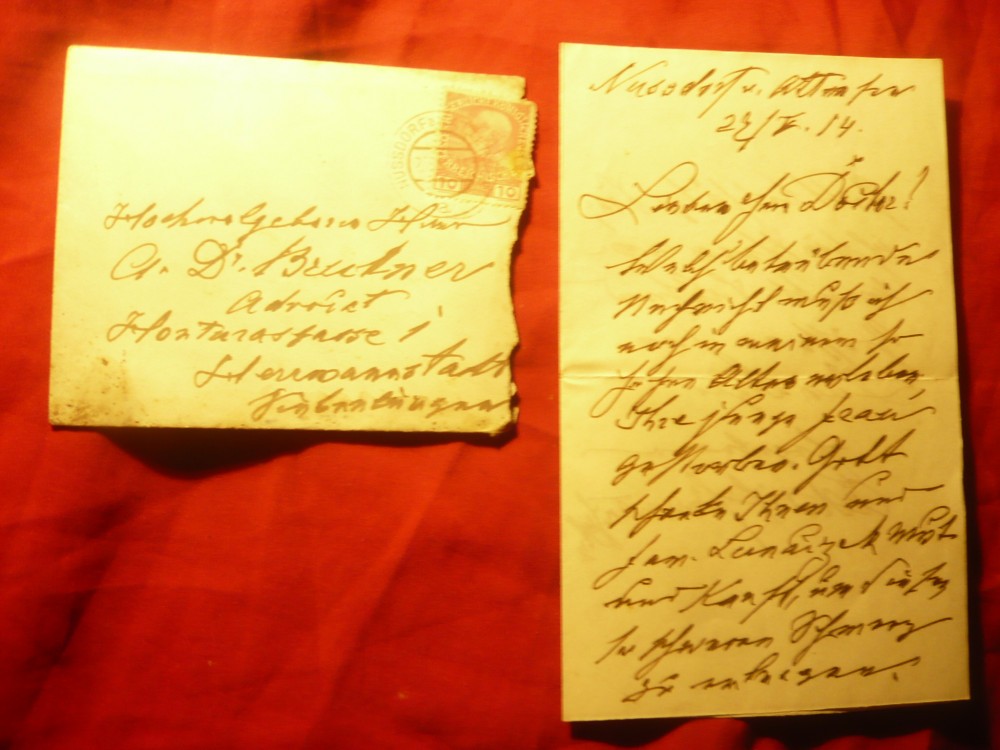 NUSSDORF
10
Hochwolgeboren Herrn
A. Dr. Bruckner
Advocat
Honterusgasse 1
Herrmannstadt
Siebenbürgen
Nussdorf a. Attersee
27/V. 14.
Lieber Herr Doctor!
Welch betrübende
Nachricht muß ich
noch in meinem so
hohen Alter erleben,
Ihre junge Frau
gestorben. Gott
schenke Ihnen und
Fam. Mut
und Kraft, um diesen
so schweren Schmerz
zu ertragen.